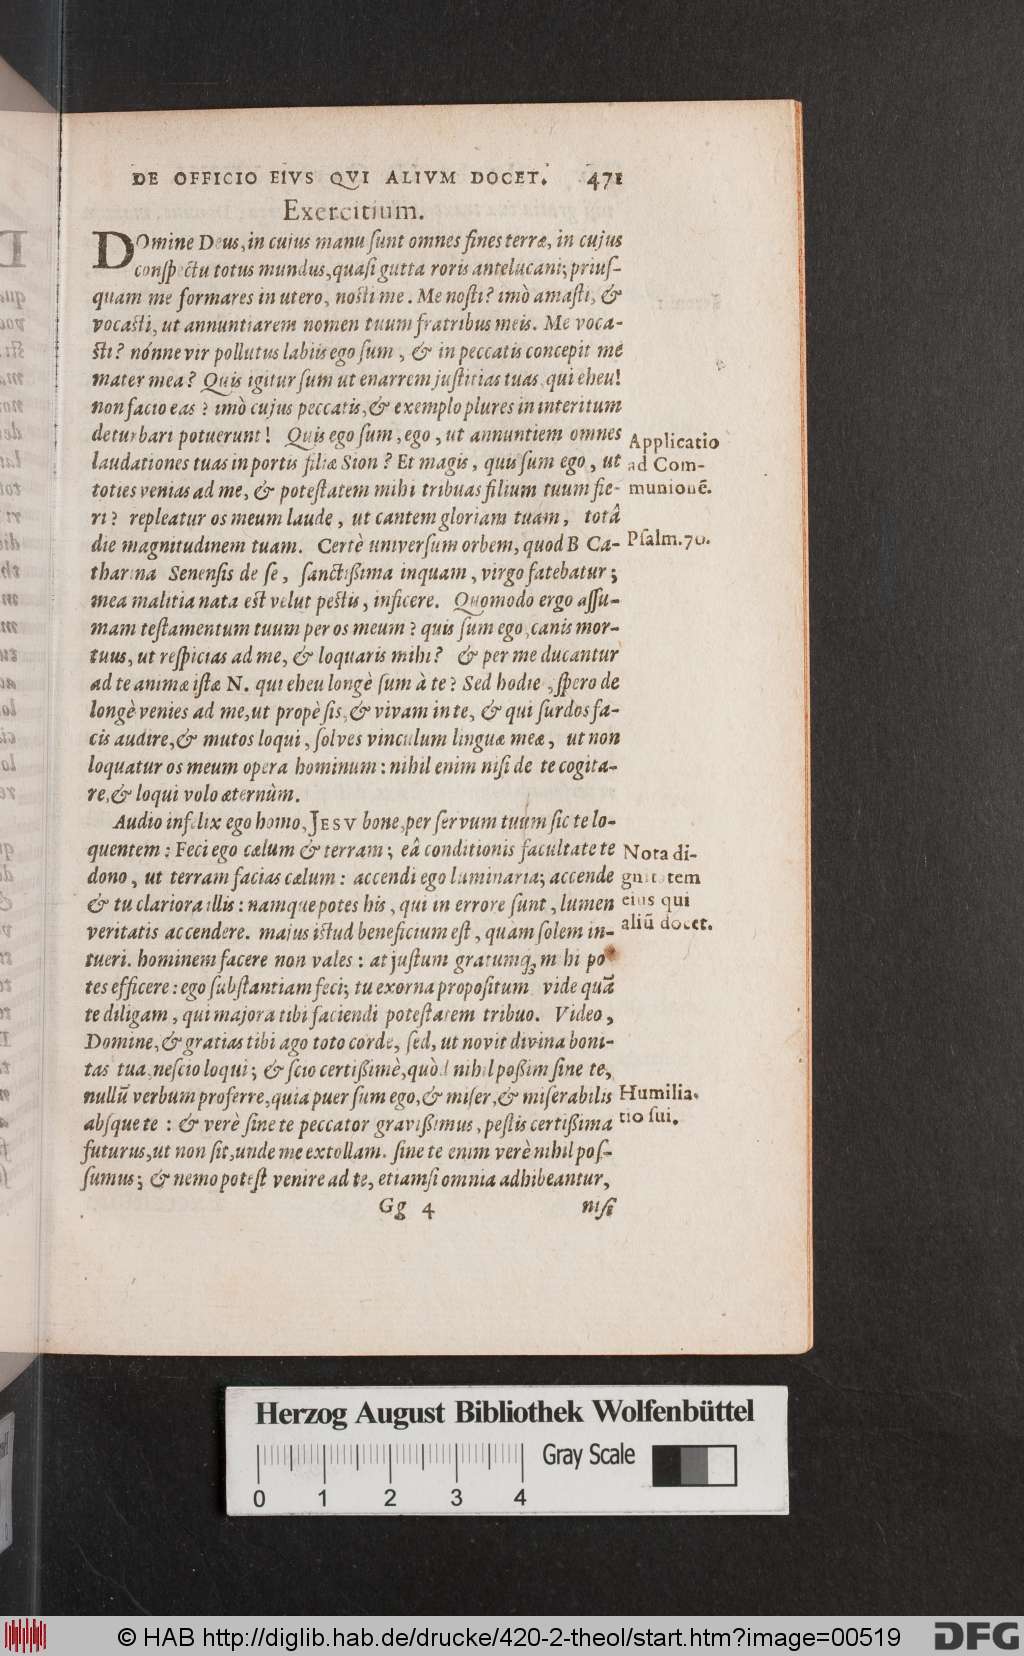 DE OFFICIO EIVS QVI ALIVM DOCET. 471
Exercitium.
DOmine Deus, in cujus manu sunt omnes fines terræ, in cujus
conspectu totus mundus, quasi gutta roris antelucani; prius-
quam me formares in utero, nosti me. Me nosti? imò amasti, &
vocasti, ut annuntiarem nomen tuum fratribus meis. Me voca-
sti? nónne vir pollutus labiis ego sum, & in peccatis concepit me
mater mea? Quis igitur sum ut enarrem justitias tuas, qui eheu!
non facio eas? imò cujus peccatis, & exemplo plures in interitum
deturbari potuerunt! Quis ego sum, ego, ut annuntiem omnes
laudationes tuas in portis filiæ Sion? Et magis, quis sum ego, ut
toties venias ad me, & potestatem mihi tribuas filium tuum fie-
ri? repleatur os meum laude, ut cantem gloriam tuam, totâ
die magnitudinem tuam. Certè universum orbem, quod B Ca-
tharina Senensis de se, sanctißima inquam, virgo fatebatur;
mea malitia nata est velut pestis, inficere. Quomodo ergo assu-
mam testamentum tuum per os meum? quis sum ego, canis mor-
tuus, ut respicias ad me, & loquaris mihi? & per me ducantur
ad te animæ istæ N. qui eheu longè sum à te? Sed hodie, spero de
longè venies ad me, ut propè sis, & vivam in te, & qui surdos fa-
cis audire, & mutos loqui, solves vinculum linguæ meæ, ut non
loquatur os meum opera hominum: nihil enim nisi de te cogita-
re, & loqui volo æternùm.
Applicatio
ad Com-
munionē.
Psalm. 70.
Audio infelix ego homo, JESV bone, per servum tuum sic te lo-
quentem: Feci ego cælum & terram; eâ conditionis facultate te
dono, ut terram facias cælum: accendi ego luminaria; accende
& tu clariora illis: namque potes his, qui in errore sunt, lumen
veritatis accendere. majus istud beneficium est, quàm solem in-
tueri. hominem facere non vales: at justum gratumq; mihi po
tes efficere: ego substantiam feci; tu exorna propositum vide quā
te diligam, qui majora tibi faciendi potestatem tribuo. Video,
Domine, & gratias tibi ago toto corde, sed, ut novit divina boni-
tas tua, nescio loqui; & scio certißimè, quòd nihil poßim sine te,
nullū verbum proferre, quia puer sum ego, & miser, & miserabilis
absque te: & verè sine te peccator gravißimus, pestis certißima
futurus, ut non sit, unde me extollam. sine te enim verè nihil pos-
sumus; & nemo potest venire ad te, etiamsi omnia adhibeantur,
Nota di-
gnitatem
eius qui
aliū docet.
Humilia-
tio sui.
Gg 4 nisi
Herzog August Bibliothek Wolfenbüttel
Gray Scale
0 1 2 3 4
© HAB http://diglib.hab.de/drucke/420-2-theol/start.htm?image=00519
DFG